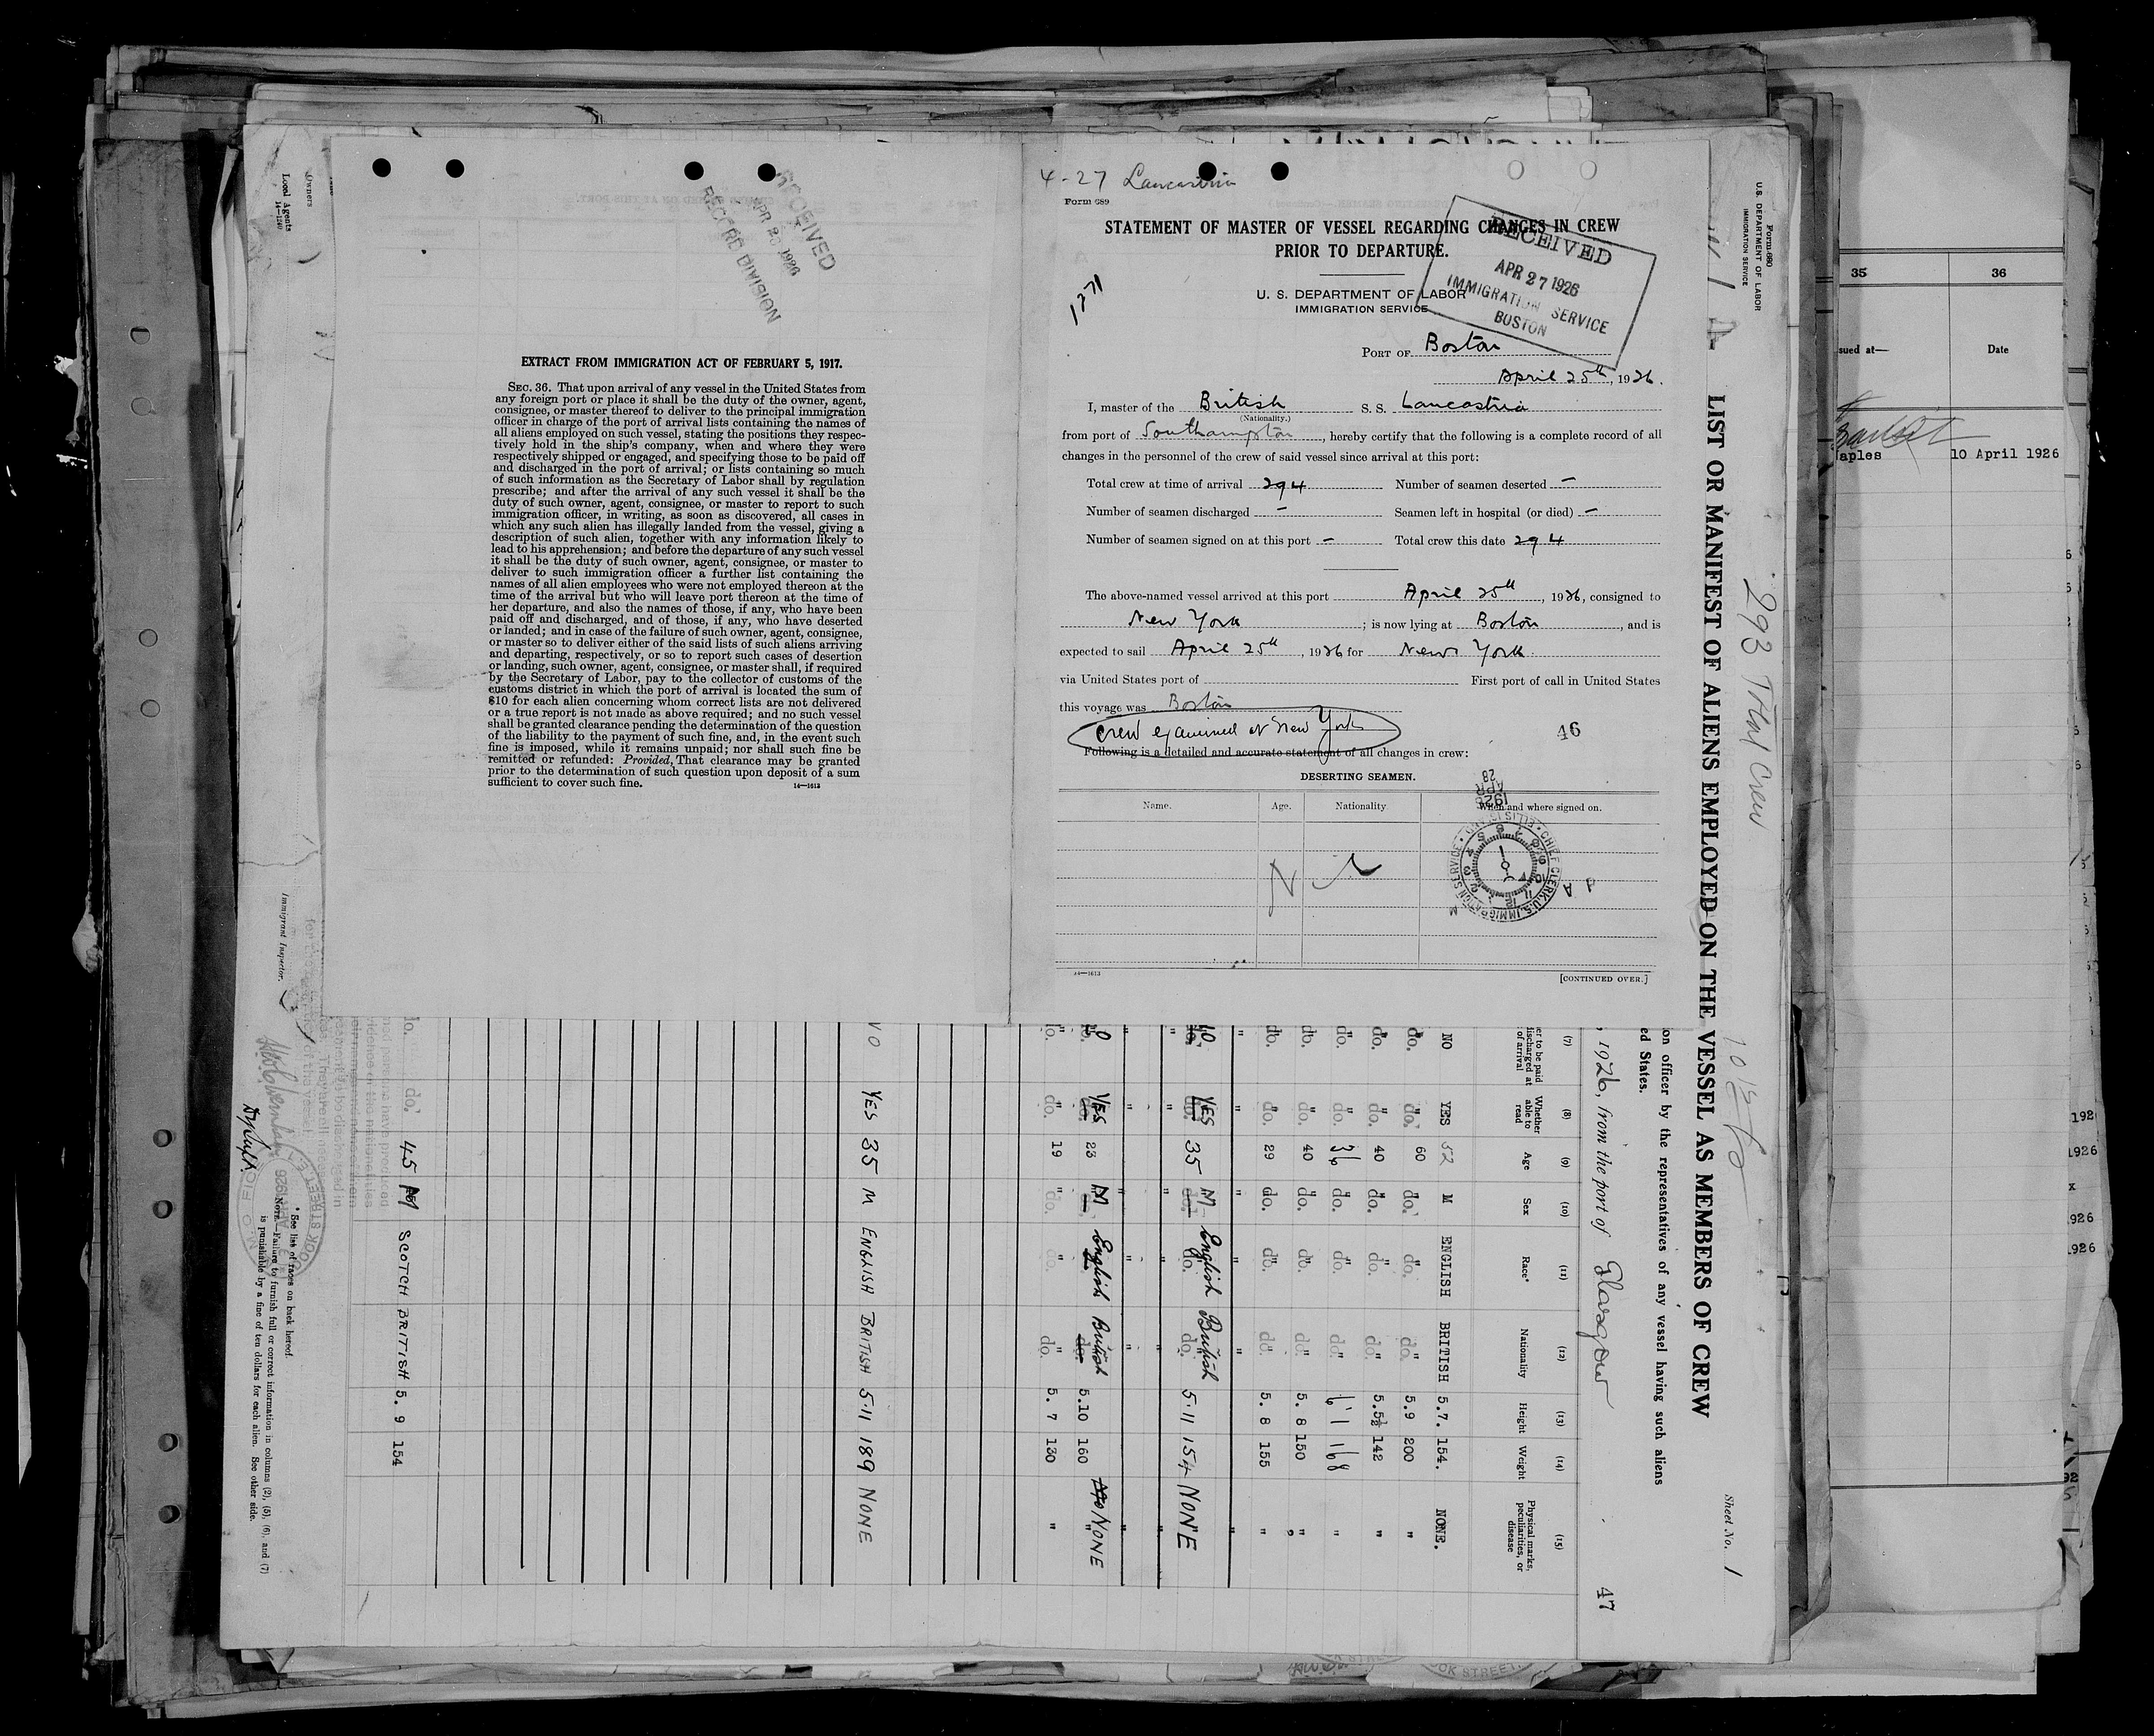 4-27 Lancastria
Form 689
STATEMENT OF MASTER OF VESSEL REGARDING CHANGES IN CREW
PRIOR TO DEPARTURE.
RECEIVED
APR 27 1926
IMMIGRATION SERVICE
BOSTON
1271
U. S. DEPARTMENT OF LABOR
IMMIGRATION SERVICE
PORT OF Boston
April 25th, 1926.
I, master of the British S. S. Lancastria
(Nationality.)
from port of Southampton, hereby certify that the following is a complete record of all
changes in the personnel of the crew of said vessel since arrival at this port:
Total crew at time of arrival 294 Number of seamen deserted –
Number of seamen discharged – Seamen left in hospital (or died) –
Number of seamen signed on at this port – Total crew this date 294
The above-named vessel arrived at this port April 25th, 1926, consigned to
New York; is now lying at Boston, and is
expected to sail April 25th, 1926 for New York
via United States port of First port of call in United States
this voyage was Boston
Crew examined at New York
46
Following is a detailed and accurate statement of all changes in crew:
DESERTING SEAMEN.
Name. Age. Nationality When and where signed on.
14—1613
[CONTINUED OVER.]
RECEIVED
APR 28 1926
RECORD DIVISION
EXTRACT FROM IMMIGRATION ACT OF FEBRUARY 5, 1917.
SEC. 36. That upon arrival of any vessel in the United States from
any foreign port or place it shall be the duty of the owner, agent,
consignee, or master thereof to deliver to the principal immigration
officer in charge of the port of arrival lists containing the names of
all aliens employed on such vessel, stating the positions they respec-
tively hold in the ship's company, when and where they were
respectively shipped or engaged, and specifying those to be paid off
and discharged in the port of arrival; or lists containing so much
of such information as the Secretary of Labor shall by regulation
prescribe; and after the arrival of any such vessel it shall be the
duty of such owner, agent, consignee, or master to report to such
immigration officer, in writing, as soon as discovered, all cases in
which any such alien has illegally landed from the vessel, giving a
description of such alien, together with any information likely to
lead to his apprehension; and before the departure of any such vessel
it shall be the duty of such owner, agent, consignee, or master to
deliver to such immigration officer a further list containing the
names of all alien employees who were not employed thereon at the
time of the arrival but who will leave port thereon at the time of
her departure, and also the names of those, if any, who have been
paid off and discharged, and of those, if any, who have deserted
or landed; and in case of the failure of such owner, agent, consignee,
or master so to deliver either of the said lists of such aliens arriving
and departing, respectively, or so to report such cases of desertion
or landing, such owner, agent, consignee, or master shall, if required
by the Secretary of Labor, pay to the collector of customs of the
customs district in which the port of arrival is located the sum of
$10 for each alien concerning whom correct lists are not delivered
or a true report is not made as above required; and no such vessel
shall be granted clearance pending the determination of the question
of the liability to the payment of such fine, and, in the event such
fine is imposed, while it remains unpaid; nor shall such fine be
remitted or refunded: Provided, That clearance may be granted
prior to the determination of such question upon deposit of a sum
sufficient to cover such fine.
14—1613
Form 680
U. S. DEPARTMENT OF LABOR
IMMIGRATION SERVICE
293 Total Crew
Sheet No. 1
LIST OR MANIFEST OF ALIENS EMPLOYED ON THE VESSEL AS MEMBERS OF CREW
on officer by the representatives of any vessel having such aliens
ed States.
, 1926, from the port of Glasgow
47
(7) (8) (9) (10) (11) (12) (13) (14) (15)
er to be paid discharged at of arrival Whether able to read Age Sex Race* Nationality Height Weight Physical marks, peculiarities, or disease
NO YES 52 M ENGLISH BRITISH 5.7. 154. NONE.
do. do. 60 do. do. do. 5.9 200 "
do. do. 40 do. do. do. 5.5½ 142 "
do. do. 36 do. do. do. 6'1 168 "
do. do. 40 do. do. do. 5. 8 150 "
do. do. 29 do. do. do. 5. 8 155 "
YES 35 M English British 5.11 154 NONE
YES 23 M English British 5.10 160 NONE
do. do. 19 do. do. do. 5. 7 130 "
NO YES 35 M ENGLISH BRITISH 5.11 189 NONE
do. do. 45 M SCOTCH BRITISH 5. 9 154
Owners
Local Agents
14—1240
Immigrant Inspector.
* See list of races on back hereof.
NOTE.—Failure to furnish full or correct information in columns (2), (5), (6), and (7)
is punishable by a fine of ten dollars for each alien. See other side.
35 36
sued at— Date
aples 10 April 1926